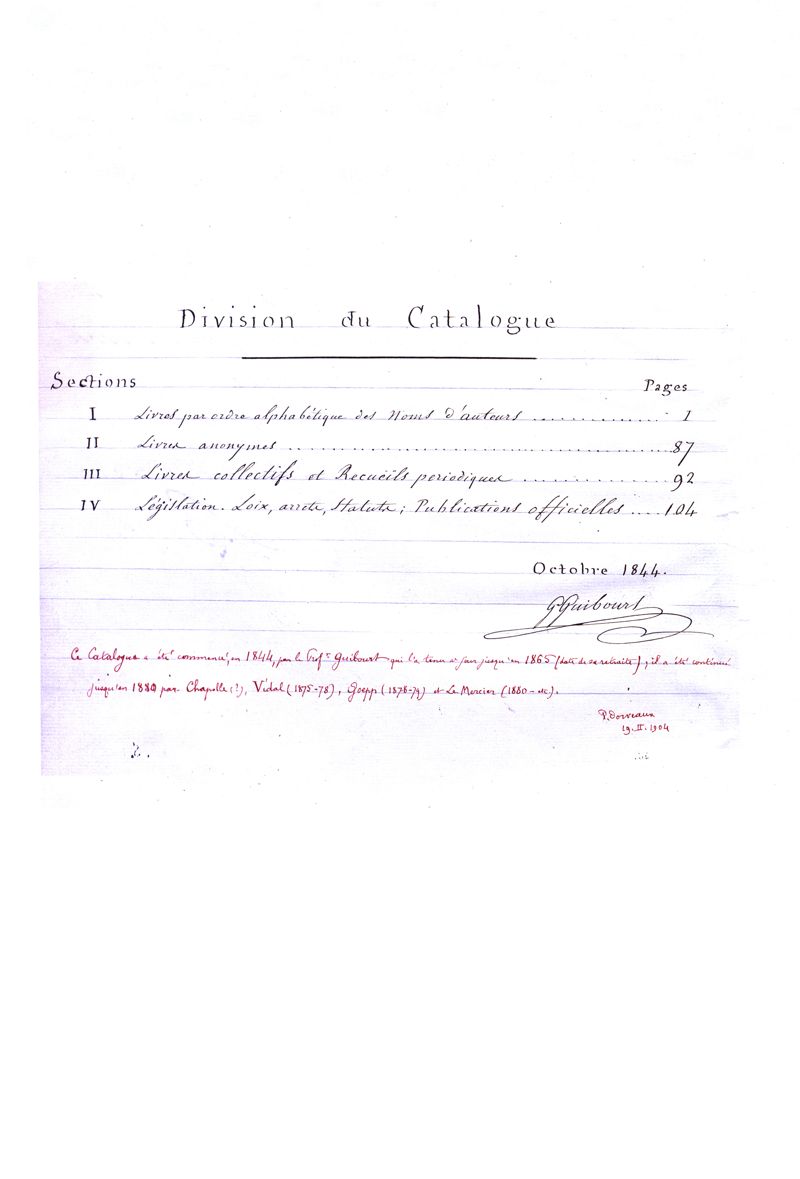 Division du Catalogue
Sections Pages
I Livres par ordre alphabétique des Noms d'auteurs .............. 1
II Livres anonymes .......................................... 87
III Livres collectifs et Recueils periodiques .................. 92
IV Législation. Loix, arrete, Statuts; Publications officielles .... 104
Octobre 1844.
G Guibourt
Ce Catalogue a été commencé, en 1844, par le Profr Guibourt qui l'a tenu à jour jusqu'en 1865 (date de sa retraite); il a été continué
jusqu'en 1880 par Chapelle (?), Vidal (1875-78), Goepp (1878-79) et Le Mercier (1880-etc).
P. Dorveaux
19.II.1904
2.